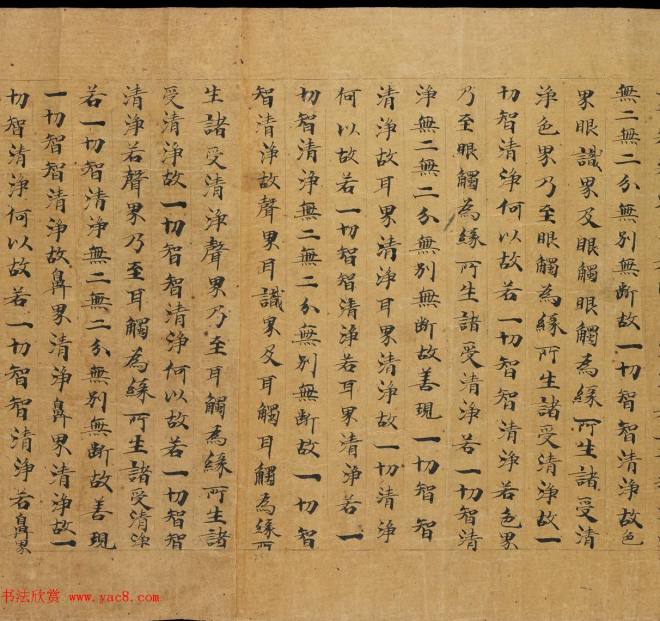 無二無二分無別無斷故一切智智清淨故色
界眼識界及眼觸眼觸為緣所生諸受清
淨色界乃至眼觸為緣所生諸受清淨故一
切智清淨何以故若一切智智清淨若色界
乃至眼觸為緣所生諸受清淨若一切智清
淨無二無二分無別無斷故善現一切智智
清淨故耳界清淨耳界清淨故一切清淨
何以故若一切智智清淨若耳界清淨若一
切智清淨無二無二分無別無斷故一切智
智清淨故聲界耳識界及耳觸耳觸為緣所
生諸受清淨聲界乃至耳觸為緣所生諸
受清淨故一切智智清淨何以故若一切智智
清淨若聲界乃至耳觸為緣所生諸受清淨
若一切智清淨無二無二分無別無斷故善現
一切智智清淨故鼻界清淨鼻界清淨故一
切智清淨何以故若一切智智清淨若鼻界
书法欣赏 www.yac8.com